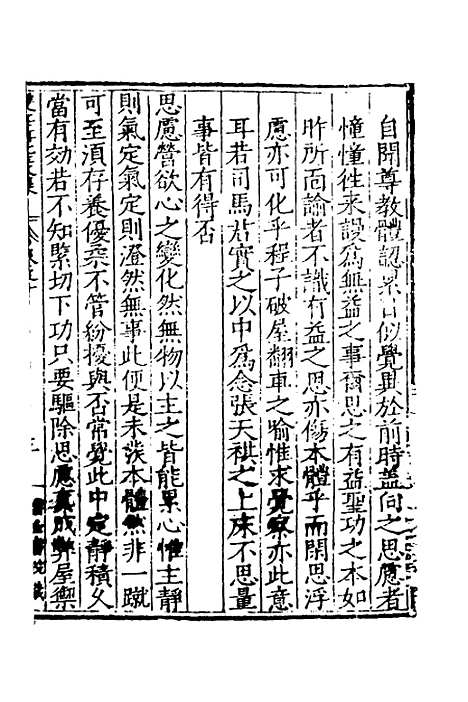 自聞尊教體認累日似覺異於前時蓋向之思慮者
憧憧徃來謾爲無益之事爾思之有益聖功之本如
昨所面論者不識有益之思亦傷本體乎而閑思浮
慮亦可化乎程子破屋翻車之喻惟求覺察亦此意
耳若司馬君實之以中爲念張天祺之上床不思量
事皆有得否
思慮營欲心之變化然無物以主之皆能累心惟主靜
則氣定氣定則澄然無事此便是未𤼵本體然非一蹴
可至湏存養優柔不管紛擾與否常覺此中定靜積久
當有効若不知緊切下功只要驅除思慮真成弊屋禦